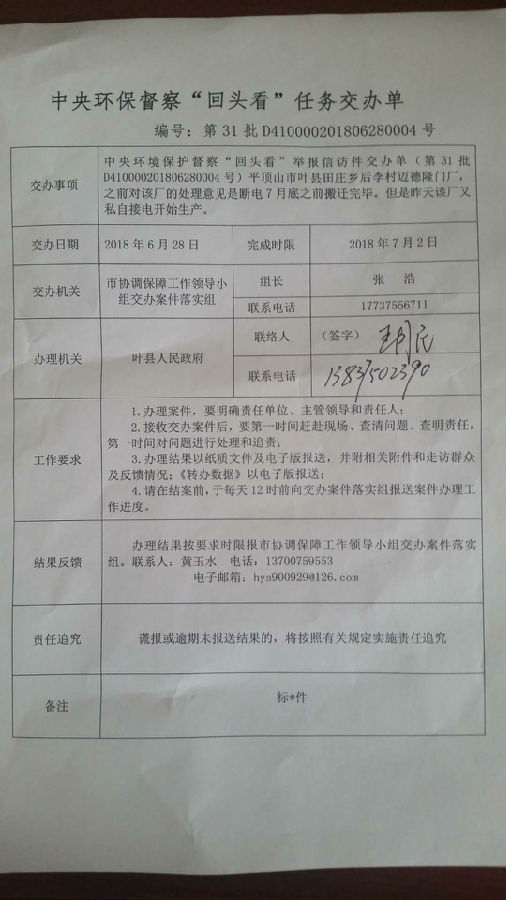 中央环保督察“回头看”任务交办单
编号：第 31 批 D410000201806280004 号
交办事项
中央环境保护督察“回头看”举报信访件交办单（第 31 批
D410000201806280004 号）平顶山市叶县田庄乡后李村迈德隆门厂，
之前对该厂的处理意见是断电 7 月底之前搬迁完毕。但是昨天该厂又
私自接电开始生产。
交办日期
2018 年 6 月 28 日
完成时限
2018 年 7 月 2 日
交办机关
市协调保障工作领导小
组交办案件落实组
组长
张 浩
联系电话
17737556711
办理机关
叶县人民政府
联络人
（签字）
联系电话
工作要求
1.办理案件，要明确责任单位、主管领导和责任人；
2.接收交办案件后，要第一时间赶赴现场、查清问题、查明责任，
第一时间对问题进行处理和追责；
3.办理结果以纸质文件及电子版报送，并附相关附件和走访群众
及反馈情况；《转办数据》以电子版报送；
4.请在结案前，于每天 12 时前向交办案件落实组报送案件办理工
作进度。
结果反馈
办理结果按要求时限报市协调保障工作领导小组交办案件落实
组。联系人：黄玉水 电话：13700759553
电子邮箱：hys900929@126.com
责任追究
谎报或逾期未报送结果的，将按照有关规定实施责任追究
备注
标*件